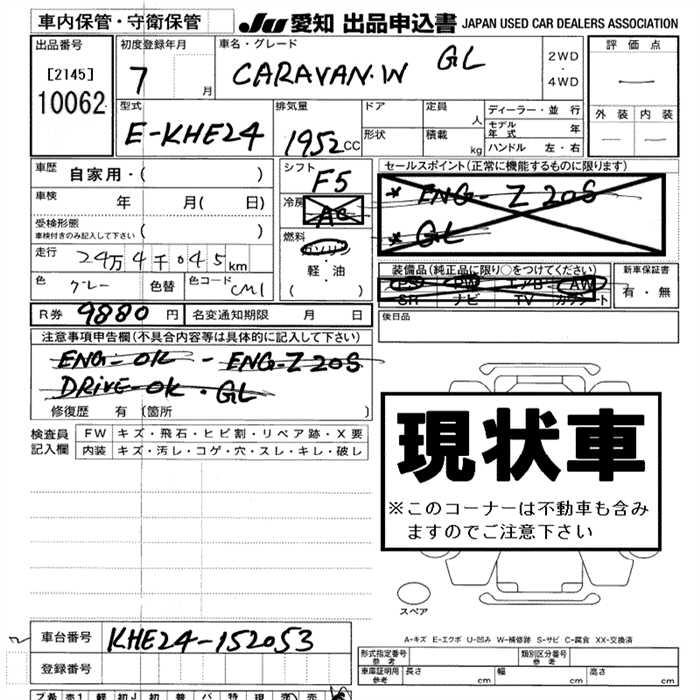 車内保管・守衛保管
JU 愛知 出品申込書 JAPAN USED CAR DEALERS ASSOCIATION
出品番号
[2145]
10062
初度登録年月
7 月
車名・グレード
CARAVAN.W GL
2WD
・
4WD
評価点
—
外装 内装
— —
型式
E-KHE24
排気量
1952 CC
ドア
形状
定員 人
積載 kg
ディーラー・並 行
モデル年式 年
ハンドル 左・右
車歴 自家用・( )
車検 年 月( 日)
受検形態
車検付きのみ記入して下さい ( )
走行 24万4千045km
色 グレー 色替 色コード CM1
シフト
F5
冷房
AC
燃料
ガソリン
・
軽・油
( )
セールスポイント(正常に機能するものに限ります)
* ENG-Z20S
* GL
装備品(純正品に限り○をつけてください)
PS PW エアB AW
SR ナビ TV カワシート
新車保証書
有・無
後日品
R券 9880 円 名変通知期限 月 日
注意事項申告欄(不具合内容等は具体的に記入して下さい)
ENG-OK - ENG-Z20S
DRIVE-OK・GL
修復歴 有(箇所 )
検査員記入欄
FW キズ・飛石・ヒビ割・リペア跡・X要
内装 キズ・汚レ・コゲ・穴・スレ・キレ・破レ
現状車
※このコーナーは不動車も含み
ますのでご注意下さい
スペア
A-キズ E-エクボ U-凹み W-補修跡 S-サビ C-腐食 XX-交換済
車台番号 KHE24-152053
登録番号
形式指定番号
参考
類別区分番号
参考
車庫証明用
参考
長さ cm 幅 cm 高さ cm